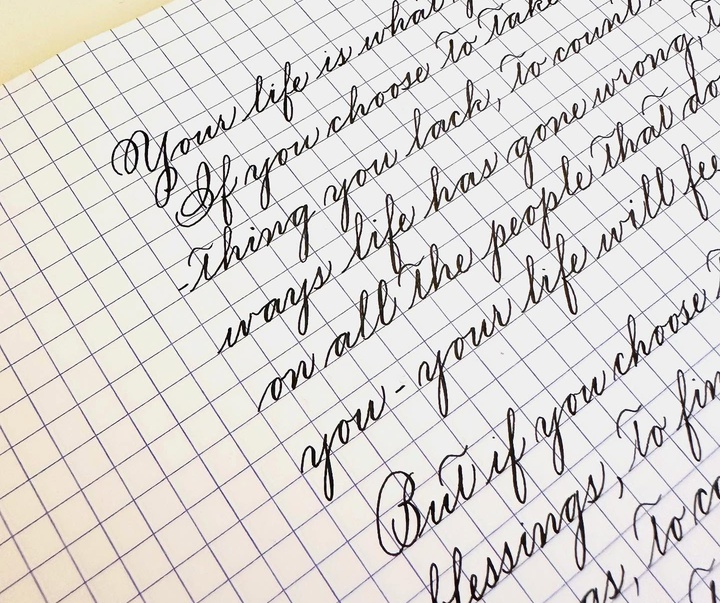 Your life is what
If you choose to take
-thing you lack, to count
ways life has gone wrong,
on all the people that do
you - your life will fee
But if you choose
blessings, to fin
as, to co